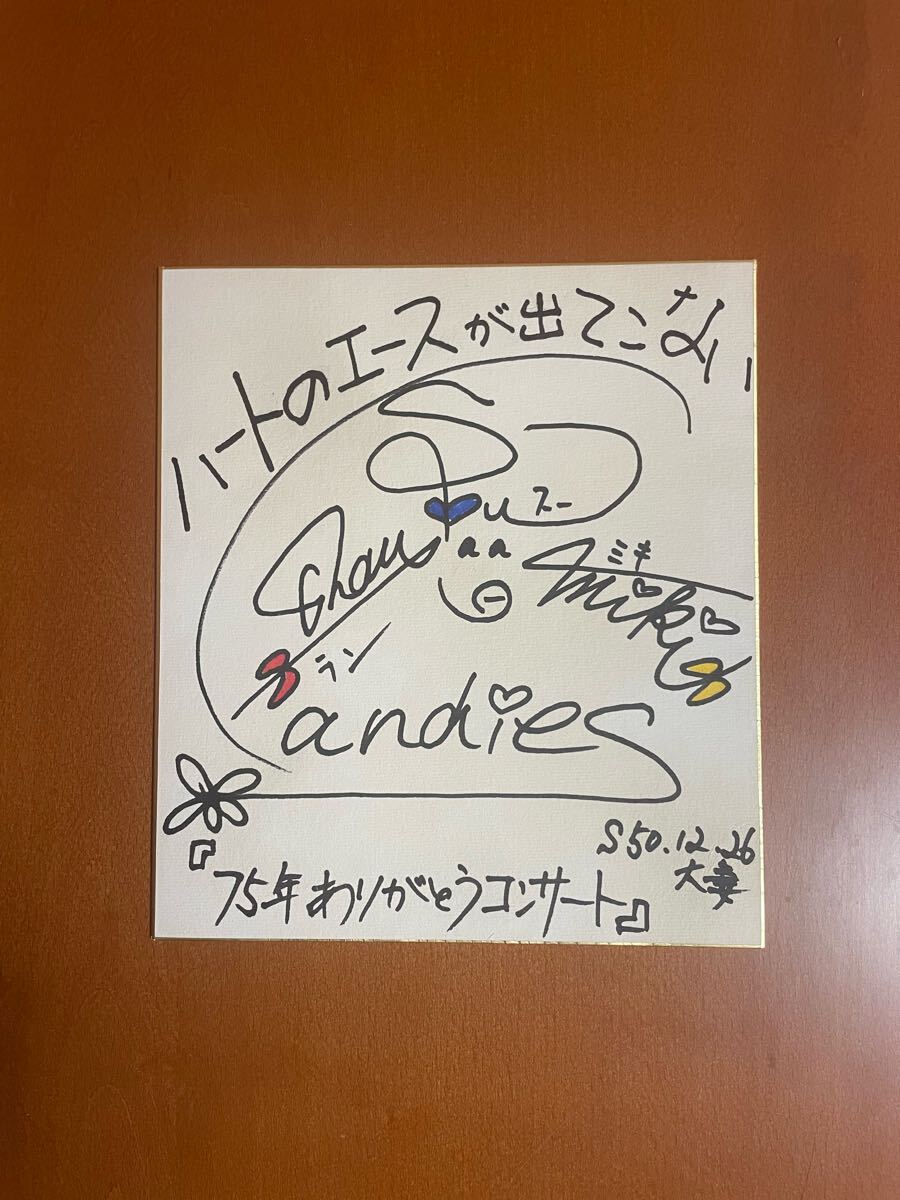 ハートのエースが出てこない
スー
ミキ
miki
ラン
Candies
S50.12.26
大妻
『75年ありがとうコンサート』